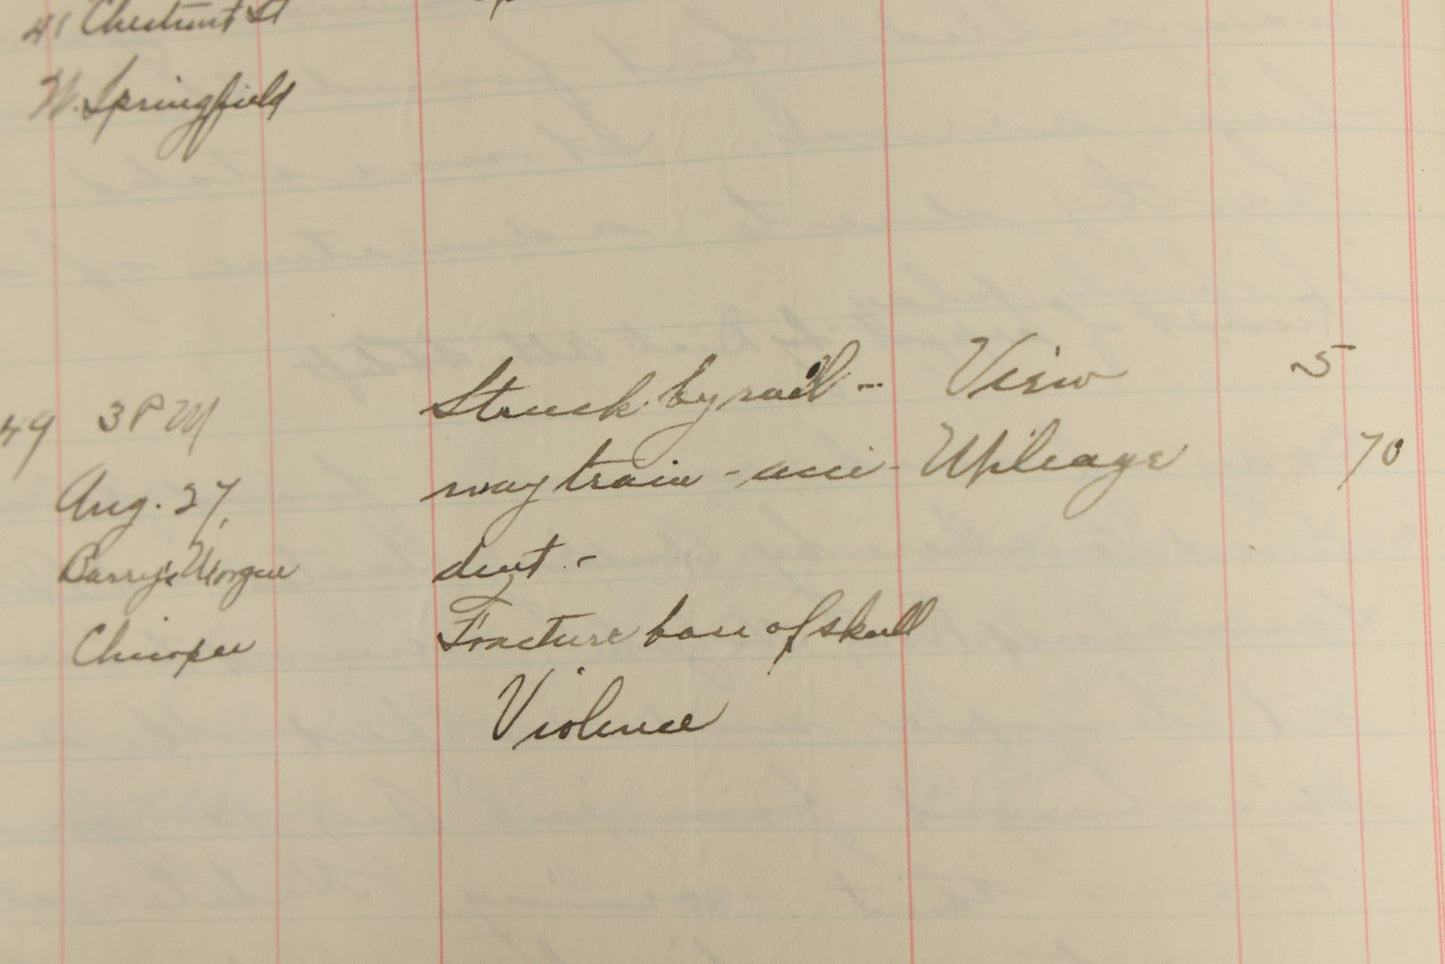 41 Chestnut St
W. Springfield
Struck by rail - View 5
49 3 PM
way train - acci - Mileage 70
Aug. 27,
Barry's Morgue
dent. -
Chicopee
Fracture base of skull
Violence